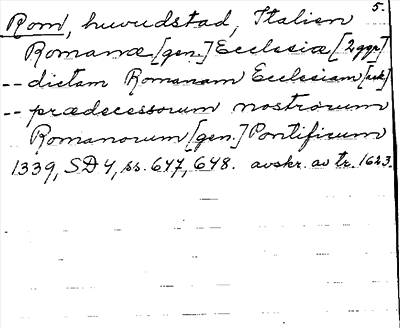 Rom, huvudstad, Italien 5.
Romanæ [gen.] Ecclesiæ [2 ggr]
-- dictam Romanam Ecclesiam [ack]
-- prædecessorum nostrorum
Romanorum [gen.] Pontificum
1339, SD 4, ss. 647, 648. avskr. av tr. 1623.